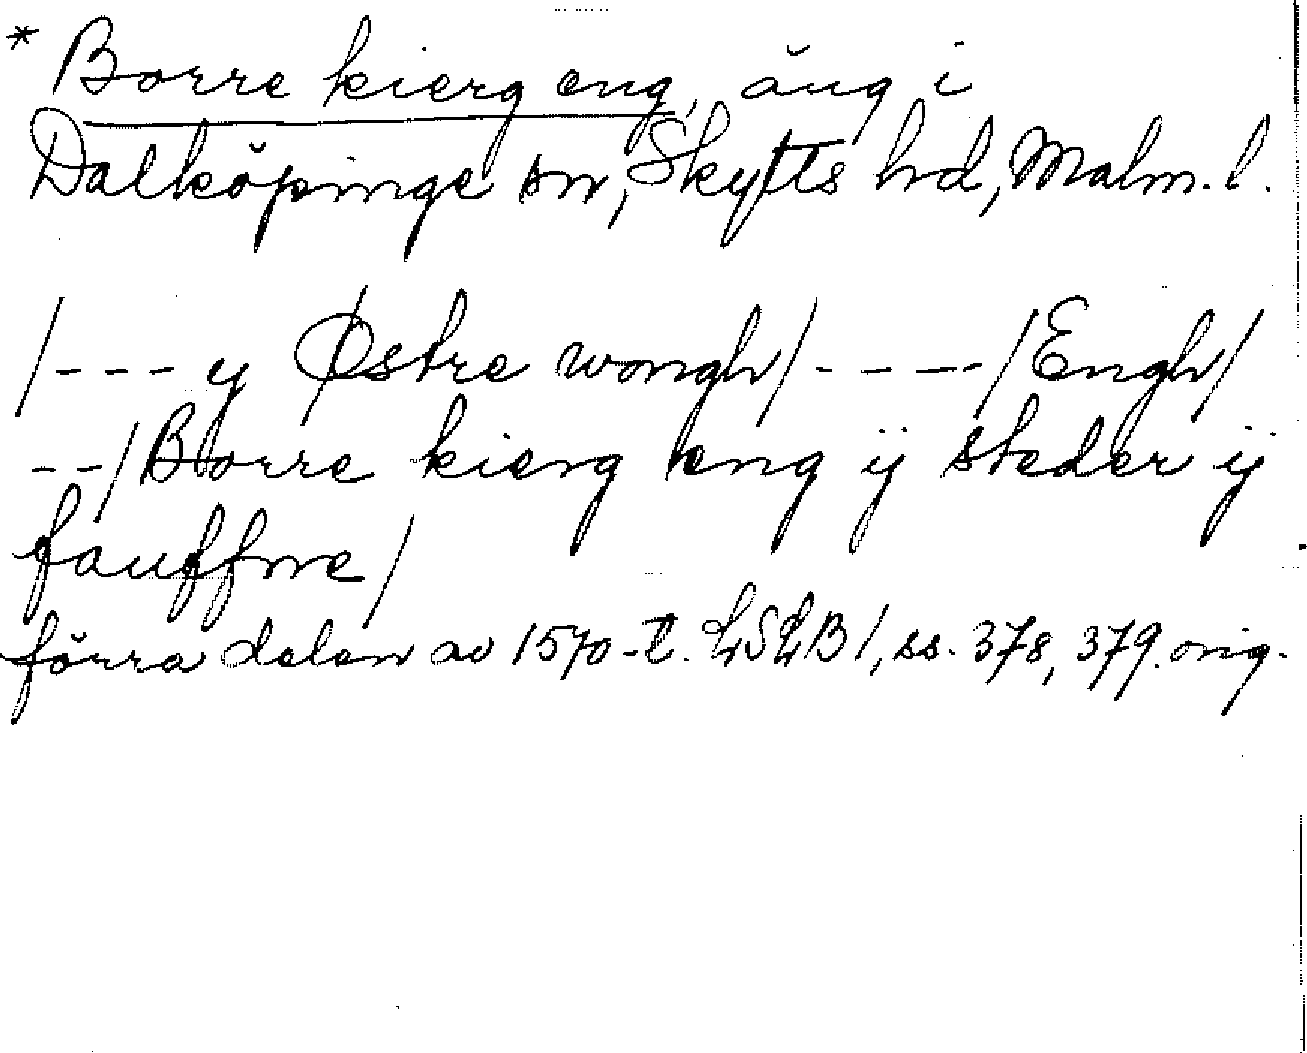 * Borre kierg eng, äng i
Dalköpinge sn, Skytts hd, Malm. l.
/--- y Østre wongh/----/Engh/
--/Borre kierg eng ÿ steder ÿ
fauffne/
förra delen av 1570-t. LSLB1, ss. 378, 379. orig.